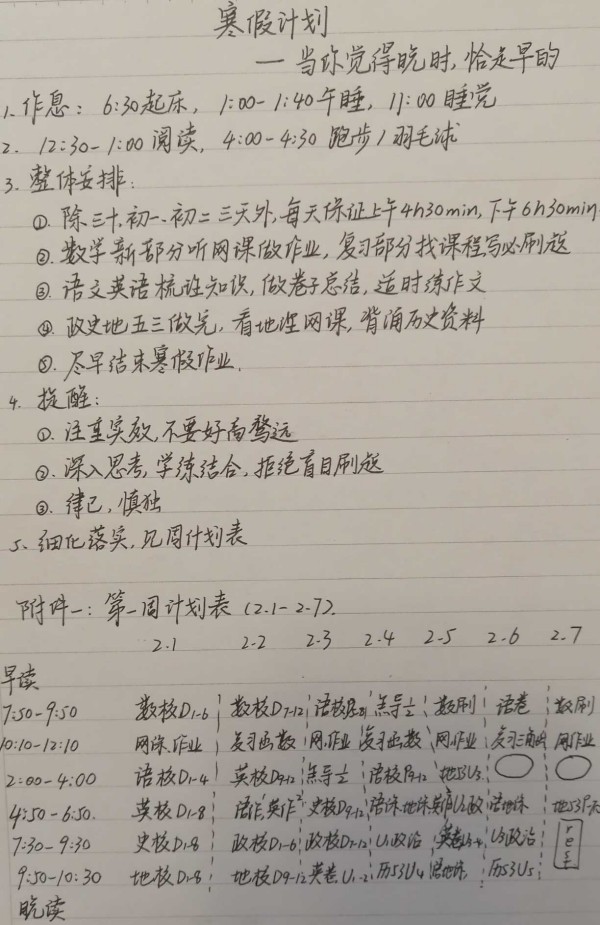 寒假计划
— 当你觉得晚时,恰是早的
1、作息: 6:30起床, 1:00-1:40午睡, 11:00睡觉
2. 12:30-1:00 阅读, 4:00-4:30 跑步/羽毛球
3. 整体安排:
①. 除三十、初一、初二三天外,每天保证上午4h30min,下午6h30min
②. 数学新部分听网课做作业,复习部分找课程写必刷题
③. 语文英语梳理知识,做卷子总结,适时练作文
④. 政史地五三做完,看地理网课,背诵历史资料
⑤. 尽早结束寒假作业.
4. 提醒:
①. 注重实效,不要好高骛远
②. 深入思考,学练结合,拒绝盲目刷题
③. 律己,慎独
5、细化落实,见周计划表
附件一: 第一周计划表 (2.1-2.7).
2.1 2.2 2.3 2.4 2.5 2.6 2.7
早读
7:50-9:50 数核D1-6 数核D7-12 语核 数刷 语卷 数刷
10:10-12:10 网课.作业 复习函数 网.作业 复习函数 网.作业 复习三角 网作业
2:00-4:00 语核D1-4 英核D9-12 语核 地53U3
4:50-6:50. 英核D1-8 语作,英作 史核D9-12 语课.地课
7:30-9:30 史核D1-8 政核D1-6 政核D7-12 U1政治 英卷 U3政治 rest
9:50-10:30 地核D1-8 地核D9-12 英卷U1-2 历53U4 历53U5
晚读